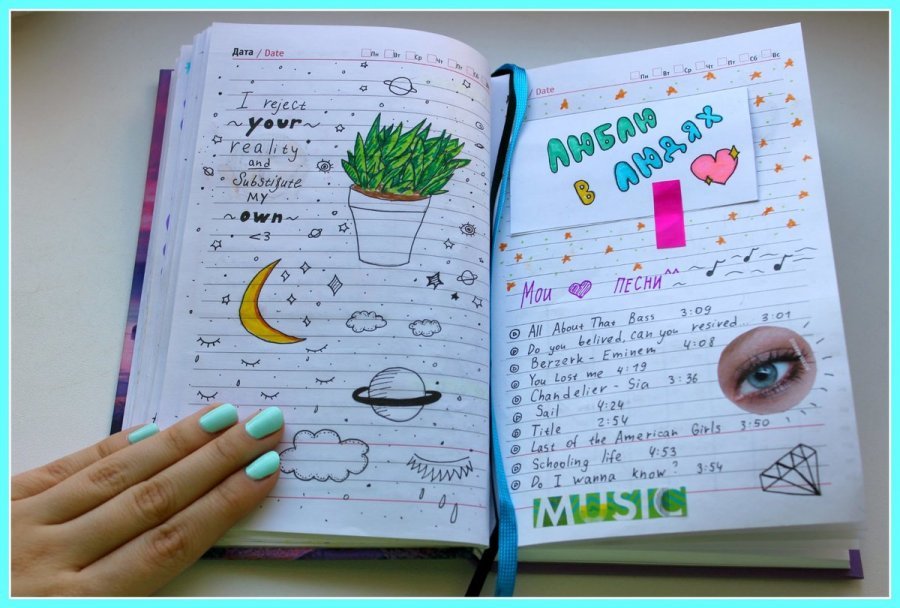 Дата / Date
Пн Вт Ср Чт Пт Сб
I reject
~ your ~
reality
and
Substitute
MY
~ own ~
<3
/ Date
Пн Вт Ср Чт Пт Сб Вс
ЛЮБЛЮ
В ЛЮДЯХ
Мои ПЕСНИ^^
All About That Bass 3:09
Do you belived, can you resived... 3:01
Berzerk - Eminem 4:08
You Lost me 4:19
Chandelier - Sia 3:36
Sail 4:24
Title 2:54
Last of the American Girls 3:50
Schooling life 4:53
Do I wanna know? 3:54
MUSIC